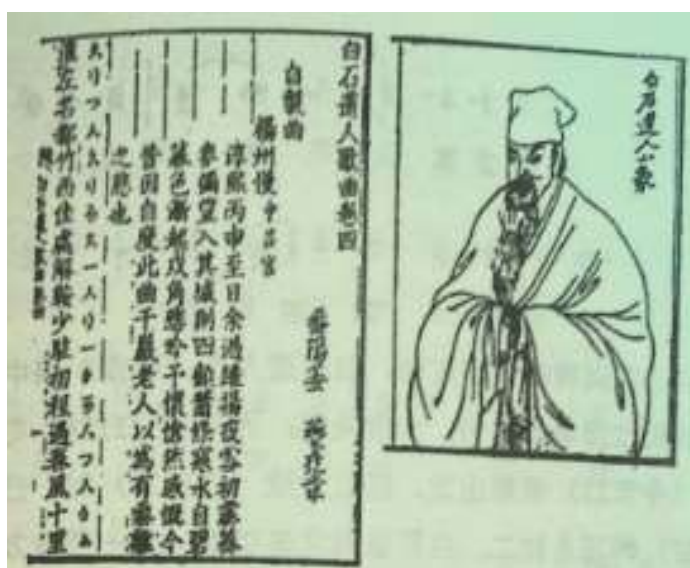 白石道人小象
白石道人歌曲卷四
番陽姜 夔堯章
自製曲
揚州慢中呂宮
淳熙丙申至日余過維揚夜雪初霽薺
麥彌望入其城則四顧蕭條寒水自碧
暮色漸起戍角悲吟予懷愴然感慨今
昔因自度此曲千巖老人以爲有黍離
之悲也
淮左名都竹西佳處解鞍少駐初程過春風十里